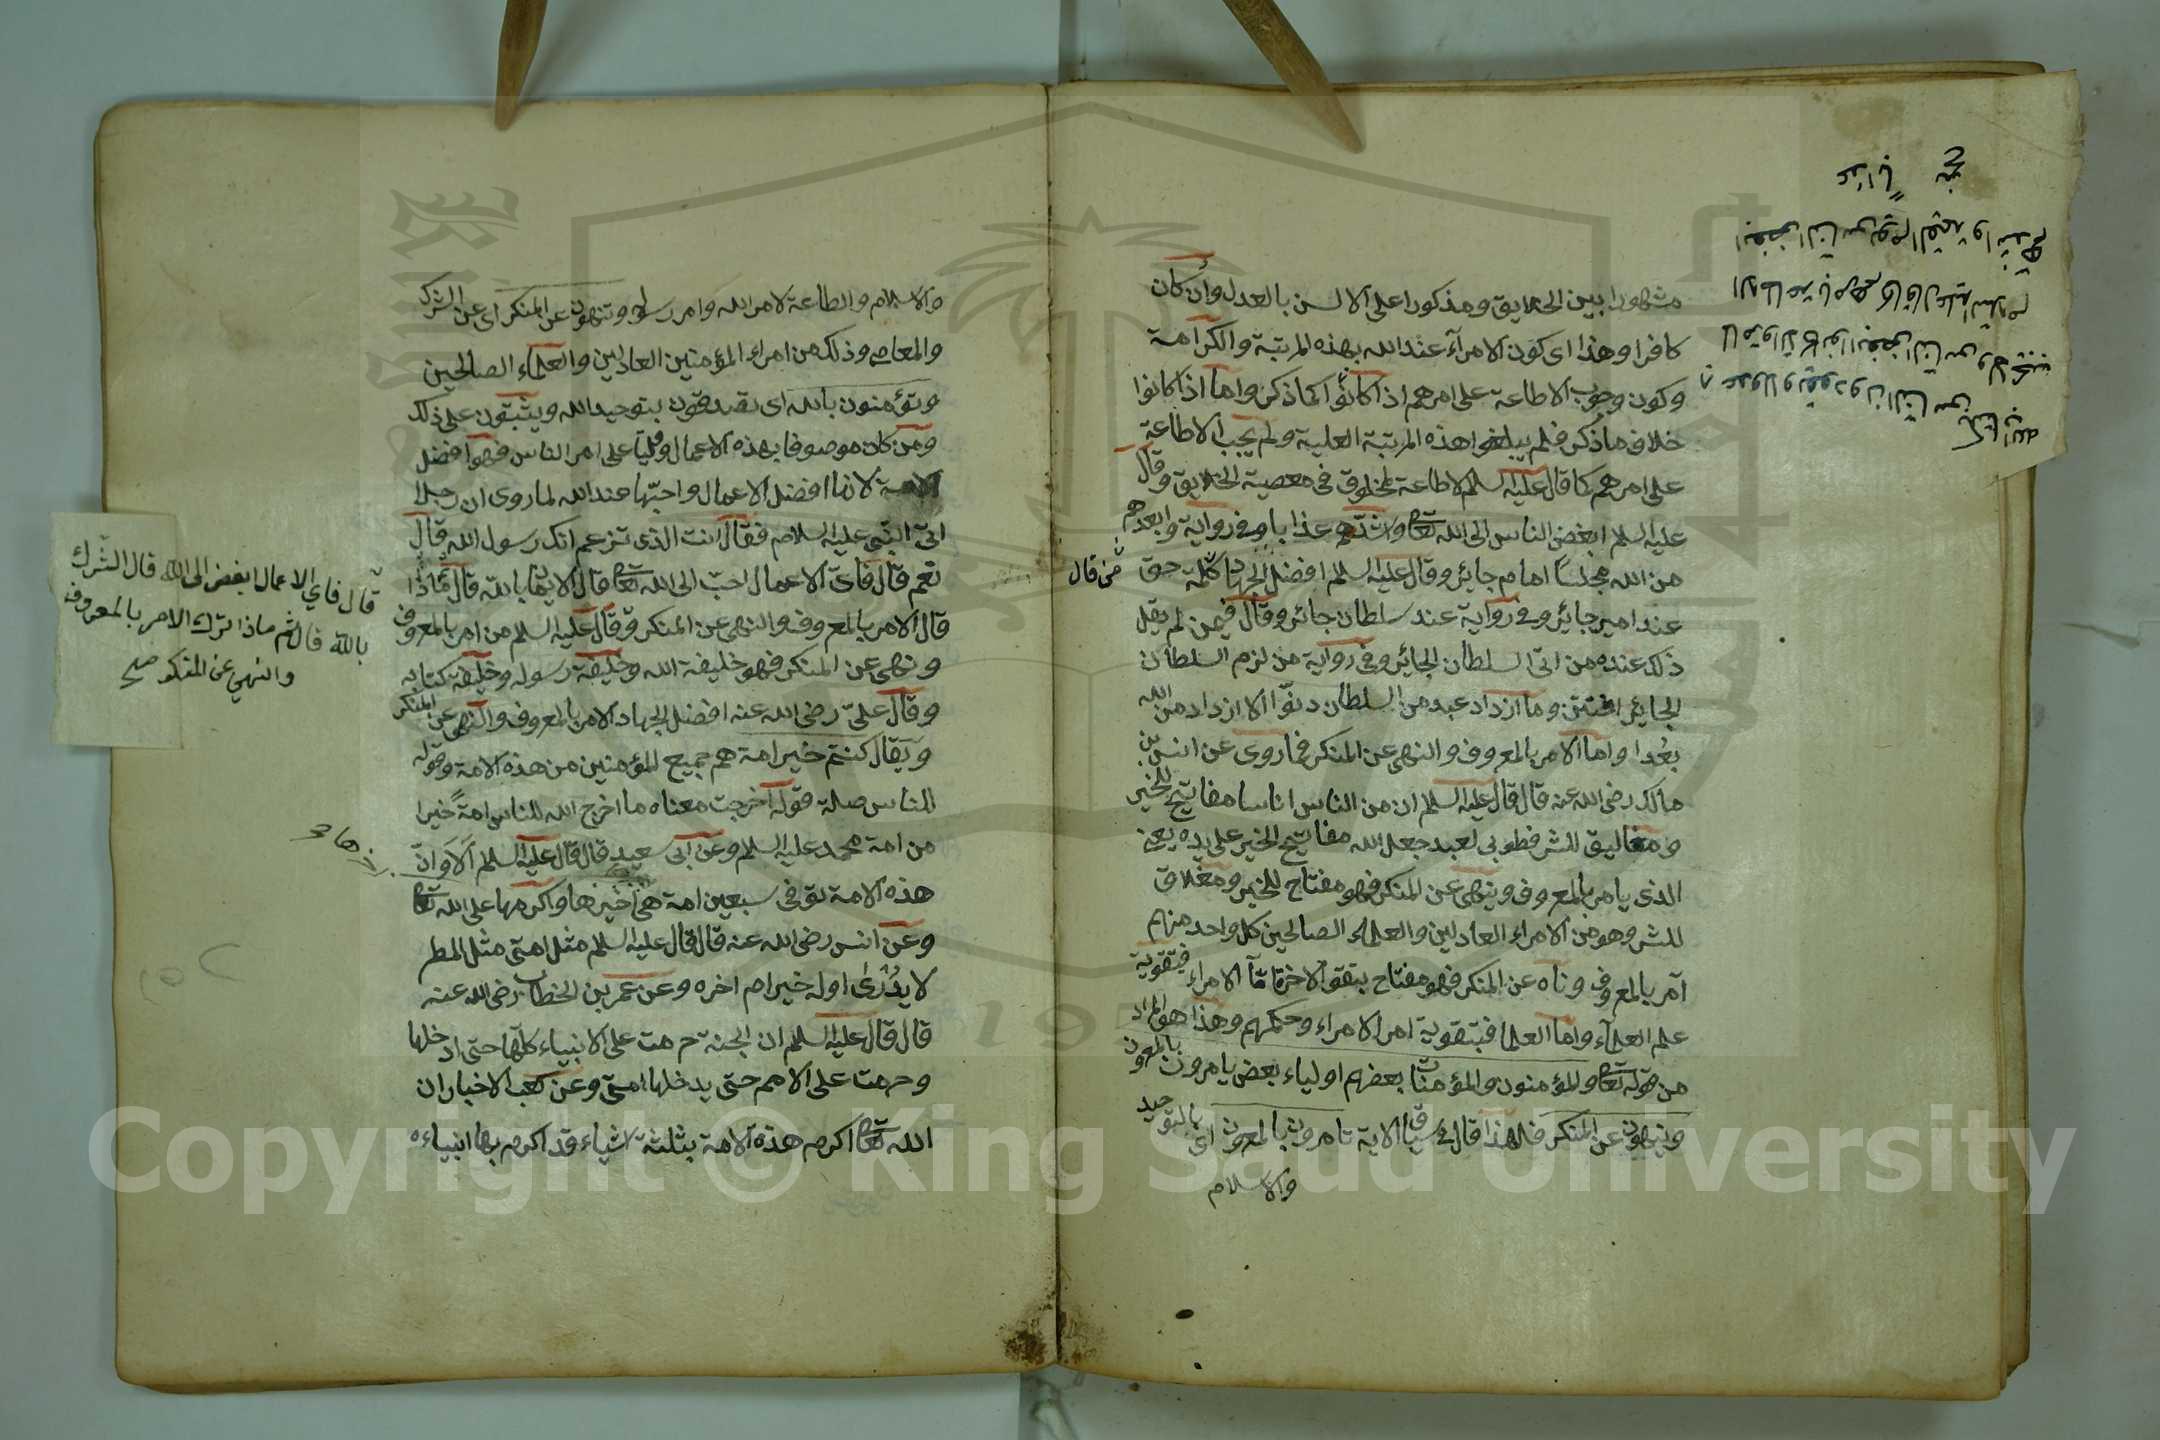 مشهورا بين الخلايق ومذكورا على الالسن بالعدل وان كان
كافرا وهذا اى كون الامرآء عند الله بهذه المرتبة والكرامة
وكون وجوب الاطاعة على امرهم اذا كانوا كما ذكر واما اذا كانوا
خلاف ما ذكر فلم يبلغوا هذه المرتبة العلية ولم يجب الاطاعة
على امرهم كما قال عليه السلم لا طاعة لمخلوق فى معصية الخلايق وقال
عليه السلم ابغض الناس الى الله تعالى واشدهم عذابا وفى رواية وابعدهم
من الله مجلسا امام جاير وقال عليه السلم افضل الجهاد كلمة حق
من قال
عند امير جاير وفى رواية عند سلطان جائر وقال فيمن لم يقل
ذلك عنده من اتى السلطان الجائر وفى رواية من لزم السلطان
الجائر افتتن وما ازداد عبد من السلطان دنوّا الا ازداد من الله
بعدا واما الامر بالمعروف والنهى عن المنكر فما روى عن انس بن
مالك رضى الله عنه قال قال عليه السلم ان من الناس اناسا مفاتيح للخير
ومغاليق للشر فطوبى لعبد جعل الله مفاتيح الخير على يده يعنى
الذى يامر بالمعروف وينهى عن المنكر فهو مفتاح للخير ومغلاق
للشر وهو من الامراء العادلين والعلماء الصالحين كل واحد منهم
آمر بالمعروف وناه عن المنكر فهو مفتاح الامراء فبتقوية
علم العلمآء واما العلما فبتقوية امر الامراء وحكمهم وهذا هو المراد
من قوله تعالى والمؤمنون والمؤمنات بعضهم اولياء بعض يامرون بالمعروف
وينهون عن المنكر فلهذا قال فى سياق الاية تامرون بالمعروف اى بالتوحيد
والاسلام
والاسلام والطاعة لامر الله وامر رسوله وتنهون عن المنكر اى عن الشرك
والمعاصى وذلك من امراء المؤمنين العادلين والعلماء الصالحين
وتؤمنون بالله اى تصدقون بتوحيد الله ويثبتون على ذلك
ومن كان موصوفا بهذه الاعمال وليّا على امر الناس فهو افضل
الامة لانها افضل الاعمال واحبّها عند الله لما روى ان رجلا
اتى النبى عليه السلام فقال انت الذى تزعم انك رسول الله قال
نعم قال فاىّ الاعمال احبّ الى الله تعالى قال الايمان بالله قال ثم ماذا
قال الامر بالمعروف والنهى عن المنكر وقال عليه السلم من امر بالمعروف
ونهى عن المنكر فهو خليفة الله وخليفة رسوله وخليفة كتابه
وقال علىّ رضى الله عنه افضل الجهاد الامر بالمعروف والنهى عن المنكر
ويقال كنتم خير امة هم جميع المؤمنين من هذه الامة وقوله
للناس صلة قوله اخرجت معناه ما اخرج الله للناس امةً خيرا
من امة محمد عليه السلم وعن ابى سعيد قال قال عليه السلم اَلَا وَانّ
هذه الامة توفى سبعين امة هى اخيرها واكرمها على الله تعالى
وعن انس رضى الله عنه قال قال عليه السلم مثل امتى مثل المطر
لا يُدْرٰى اوله خير ام اخره وعن عمر بن الخطاب رضى الله عنه
قال قال عليه السلم ان الجنة حرمت على الانبياء كلّها حتى ادخلها
وحرمت على الامم حتى يدخلها امتى وعن كعب الاخبار ان
الله تعالى اكرم هذه الامة بثلثة اشياء قد اكرم بها انبياءه
قال فاي الاعمال ابغض الى الله قال الشرك
بالله قال ثم ماذا قال ترك الامر بالمعروف
والنهي عن المنكر صح